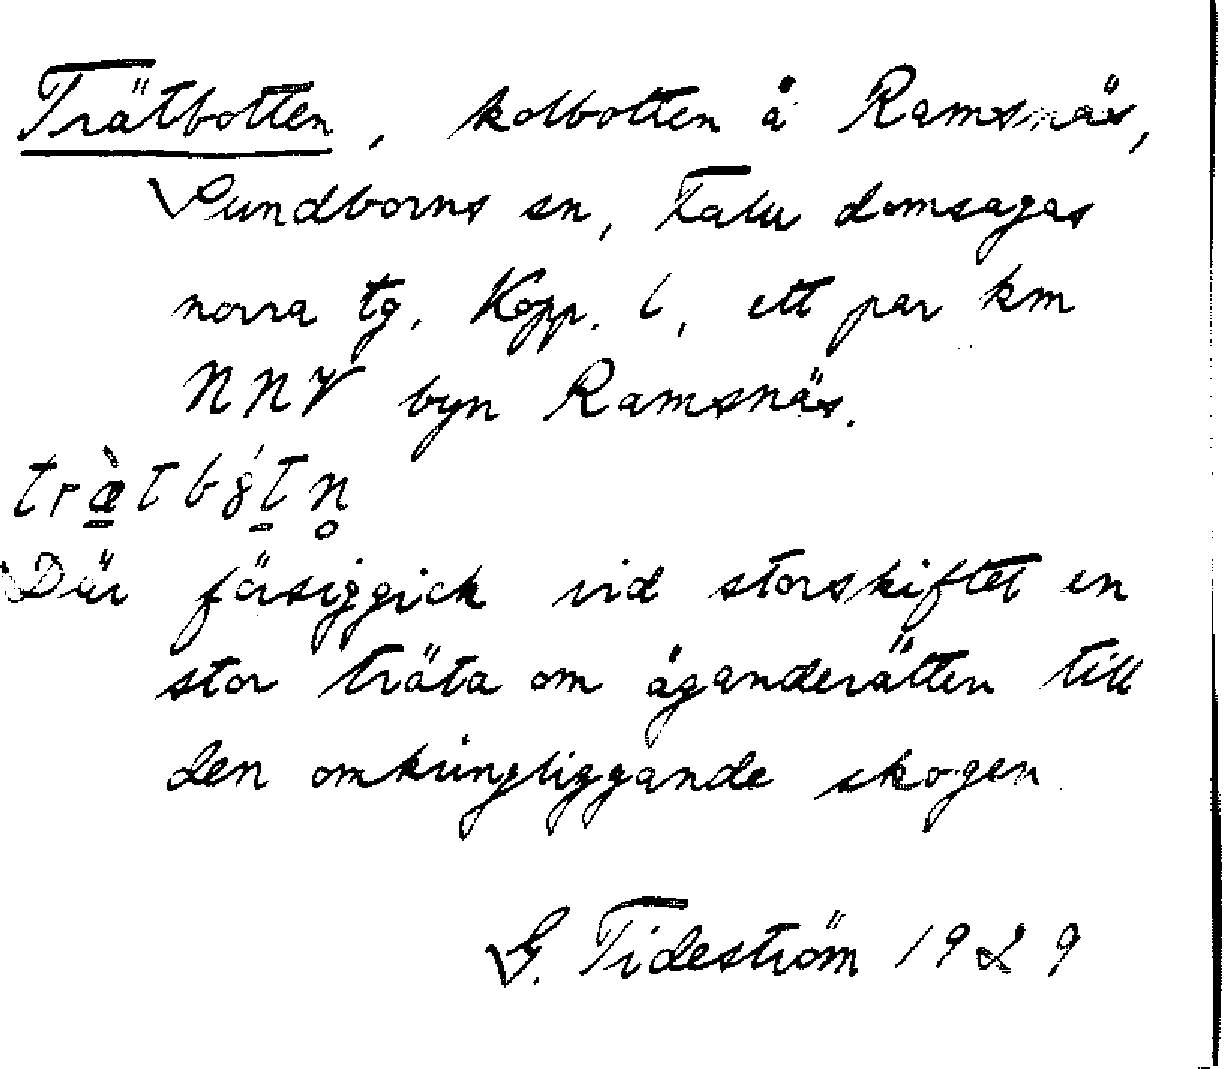 Trätbotten, kolbotten å Ramsnäs,
Sundborns sn, Falu domsagas
norra tg. Kopp. l, ett par km
NNV byn Ramsnäs.
Där försiggick vid storskiftet en
stor träta om äganderätten till
den omkringliggande skogen.
G. Tideström 1929